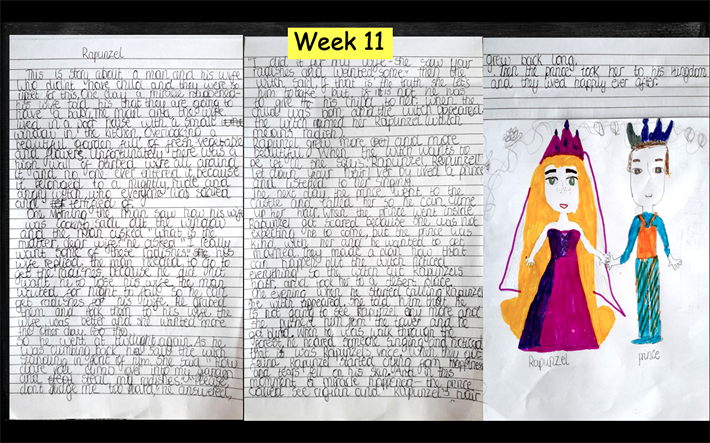 Week 11
Rapunzel
This is story about a man and his wife
who didn't have child and they were so
his wife told his that they are going to
have a baby. the man and his wife
lived in a hose have with a small
window in the kitchen overlooking a
beautiful garden full of fresh vegetables
and flowers. Unfortunately there was a
high wall of barbed wire all around
it and no one ever entered it because it
belonged to a mighty, rude and
angry witch who everyone was scared
and terrified of.
One morning the man saw how his wife
was looking out of the window
and the man asked "What is the
matter dear wife" he asked "I really
want some of these radishes" his
wife replied. The man needed to to
get the radishes because he did that
want his to lose his wife. The man
waited for night to fall So he
get radishes for his wife. He grabed
them and took them to his wife the
wife was better and she wanted more
So he went at twilight again. As he
was climbing back now saw the witch
standing in front of him. She said "How
dare you climb over into my garden
and steal my radishes" "Please
don't judge me too hard" he answered,
"I did it for my wife - she saw your
radishes and wanted some" then the
witch said "If that is the truth let's
him to take but is it's not he has
to give his child to her. When the
child was born and the witch appeared.
the witch named her Rapunzel which
means radish.
Rapunzel grew more and more
beautiful. When the witch wants to
be let in she says "Rapunzel Rapunzel
let down your hair". Her lived a prince
and listend to her singing.
The next day the prince went to the
castle and called her so he can climb
up her hair. When the prince went inside
Rapunzel got scared because she was not
expecting he to come but the prince was
kind with her and he wanted to get
married. they made a plan how that
can happend but the witch heared
everything so the witch cut Rapunzel's
hair and took her to a desert place.
One evening when he started calling Rapunzel
the witch appeared. She told him that he
is not going to see Rapunzel any more and
she pushed him from the tower and he
got blind. When he was walk through the
forest, heared someone singing and noticed
that it was Rapunzel's voice. When they got
Rapunzel started crying from happiness
and tears fell on his skin. And in this
moment a miracle happen - the prince
could see again and Rapunzel's hair
grew back long.
Then the prince took her to his kingdom
and they lived happily ever after.
Rapunzel
prince